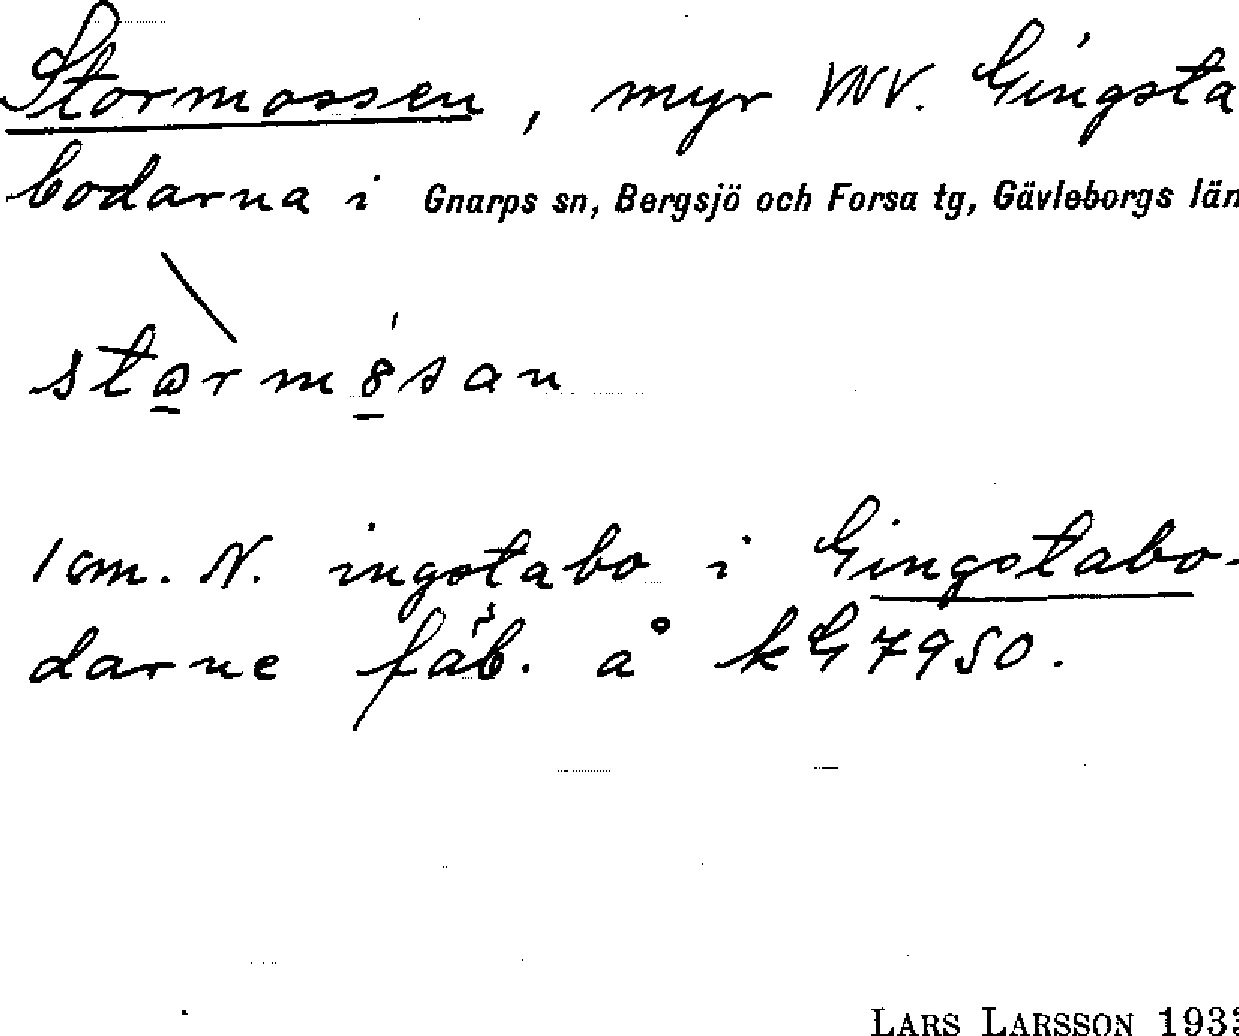 Stormossen, myr VNV. Gingsta
bodarna i Gnarps sn, Bergsjö och Forsa tg, Gävleborgs län
1 cm. N. ingstabo i Gingstabo-
darne fäb. å kG 7950.
LARS LARSSON 193